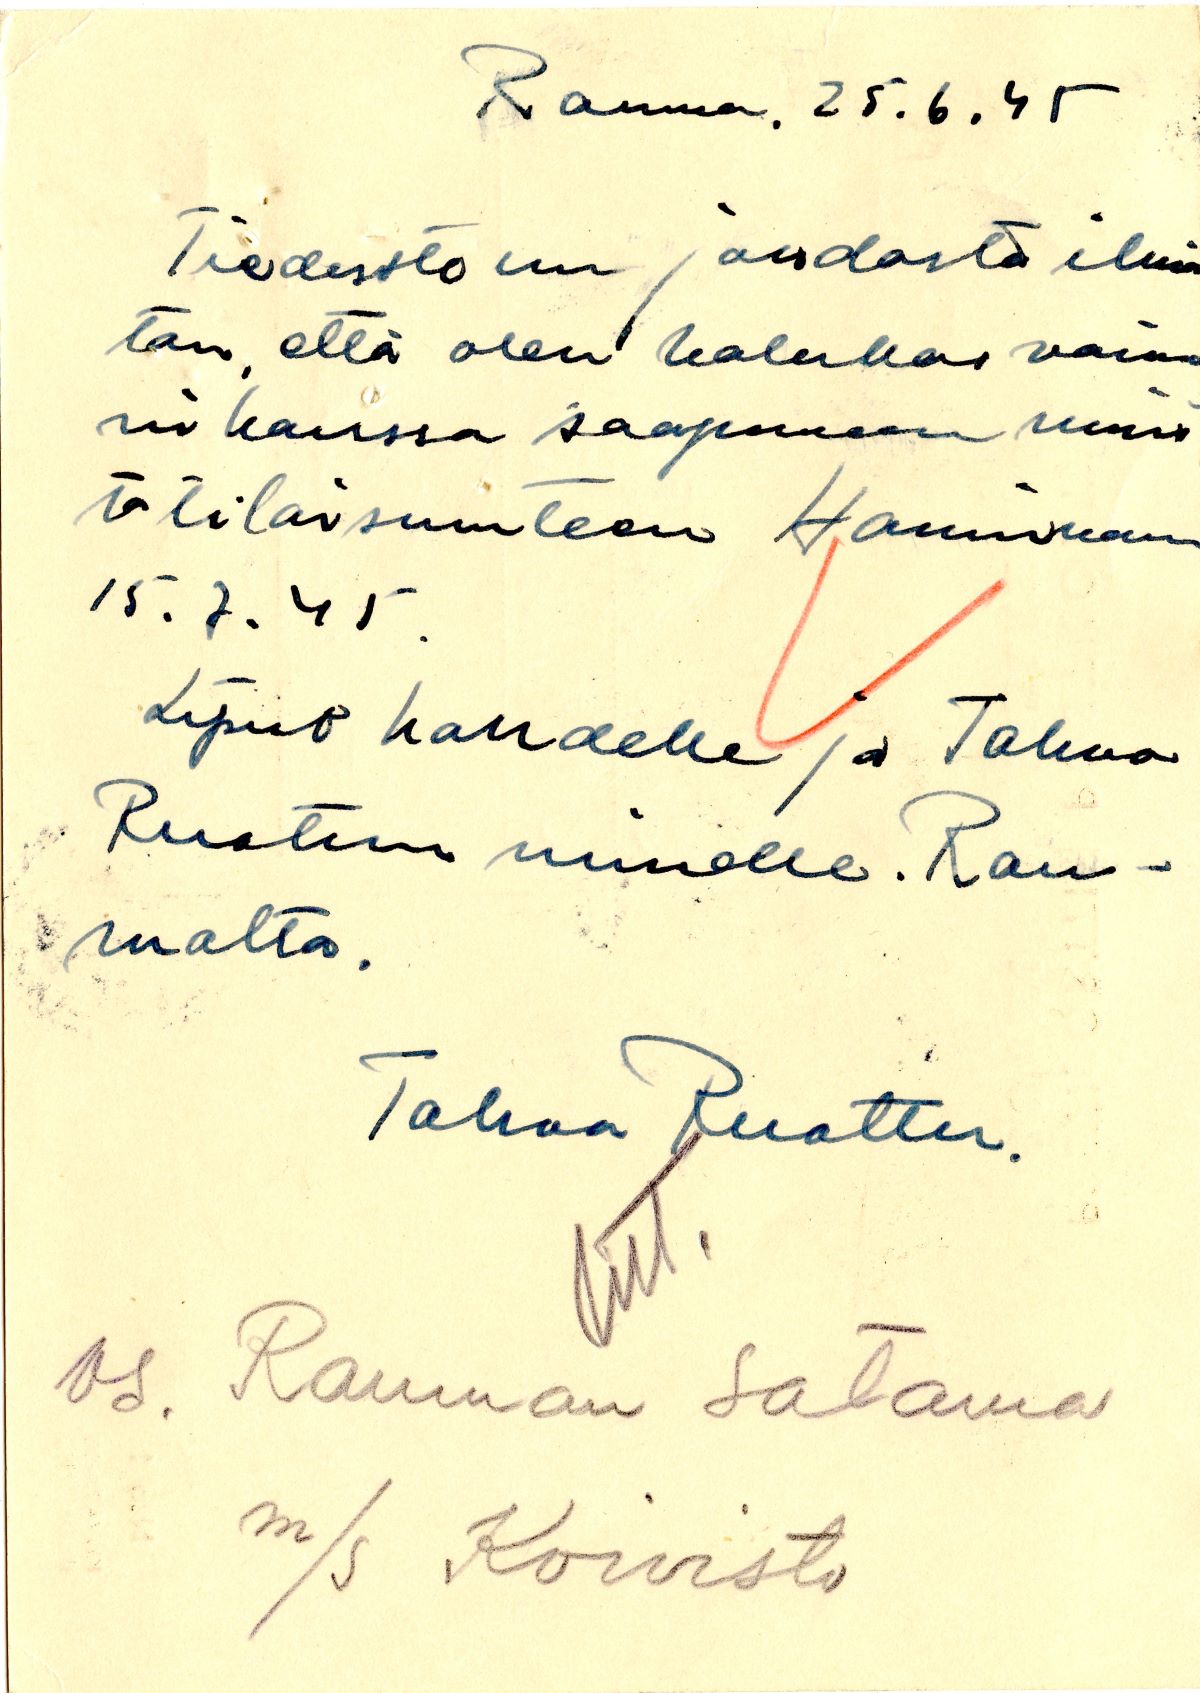 Rauma. 25.6.45
Tiedustonne johdosta ilmoi
tan, että olen halukas vaimo
ni kanssa saapumaan muis
to tilaisuuteen Haminaan
15.7.45.
Liput kahdelle ja Tahvo
Ruottu nimelle. Rau-
malta.
Tahvo Ruottu.
vs. Rauman satama
m/s Koivisto